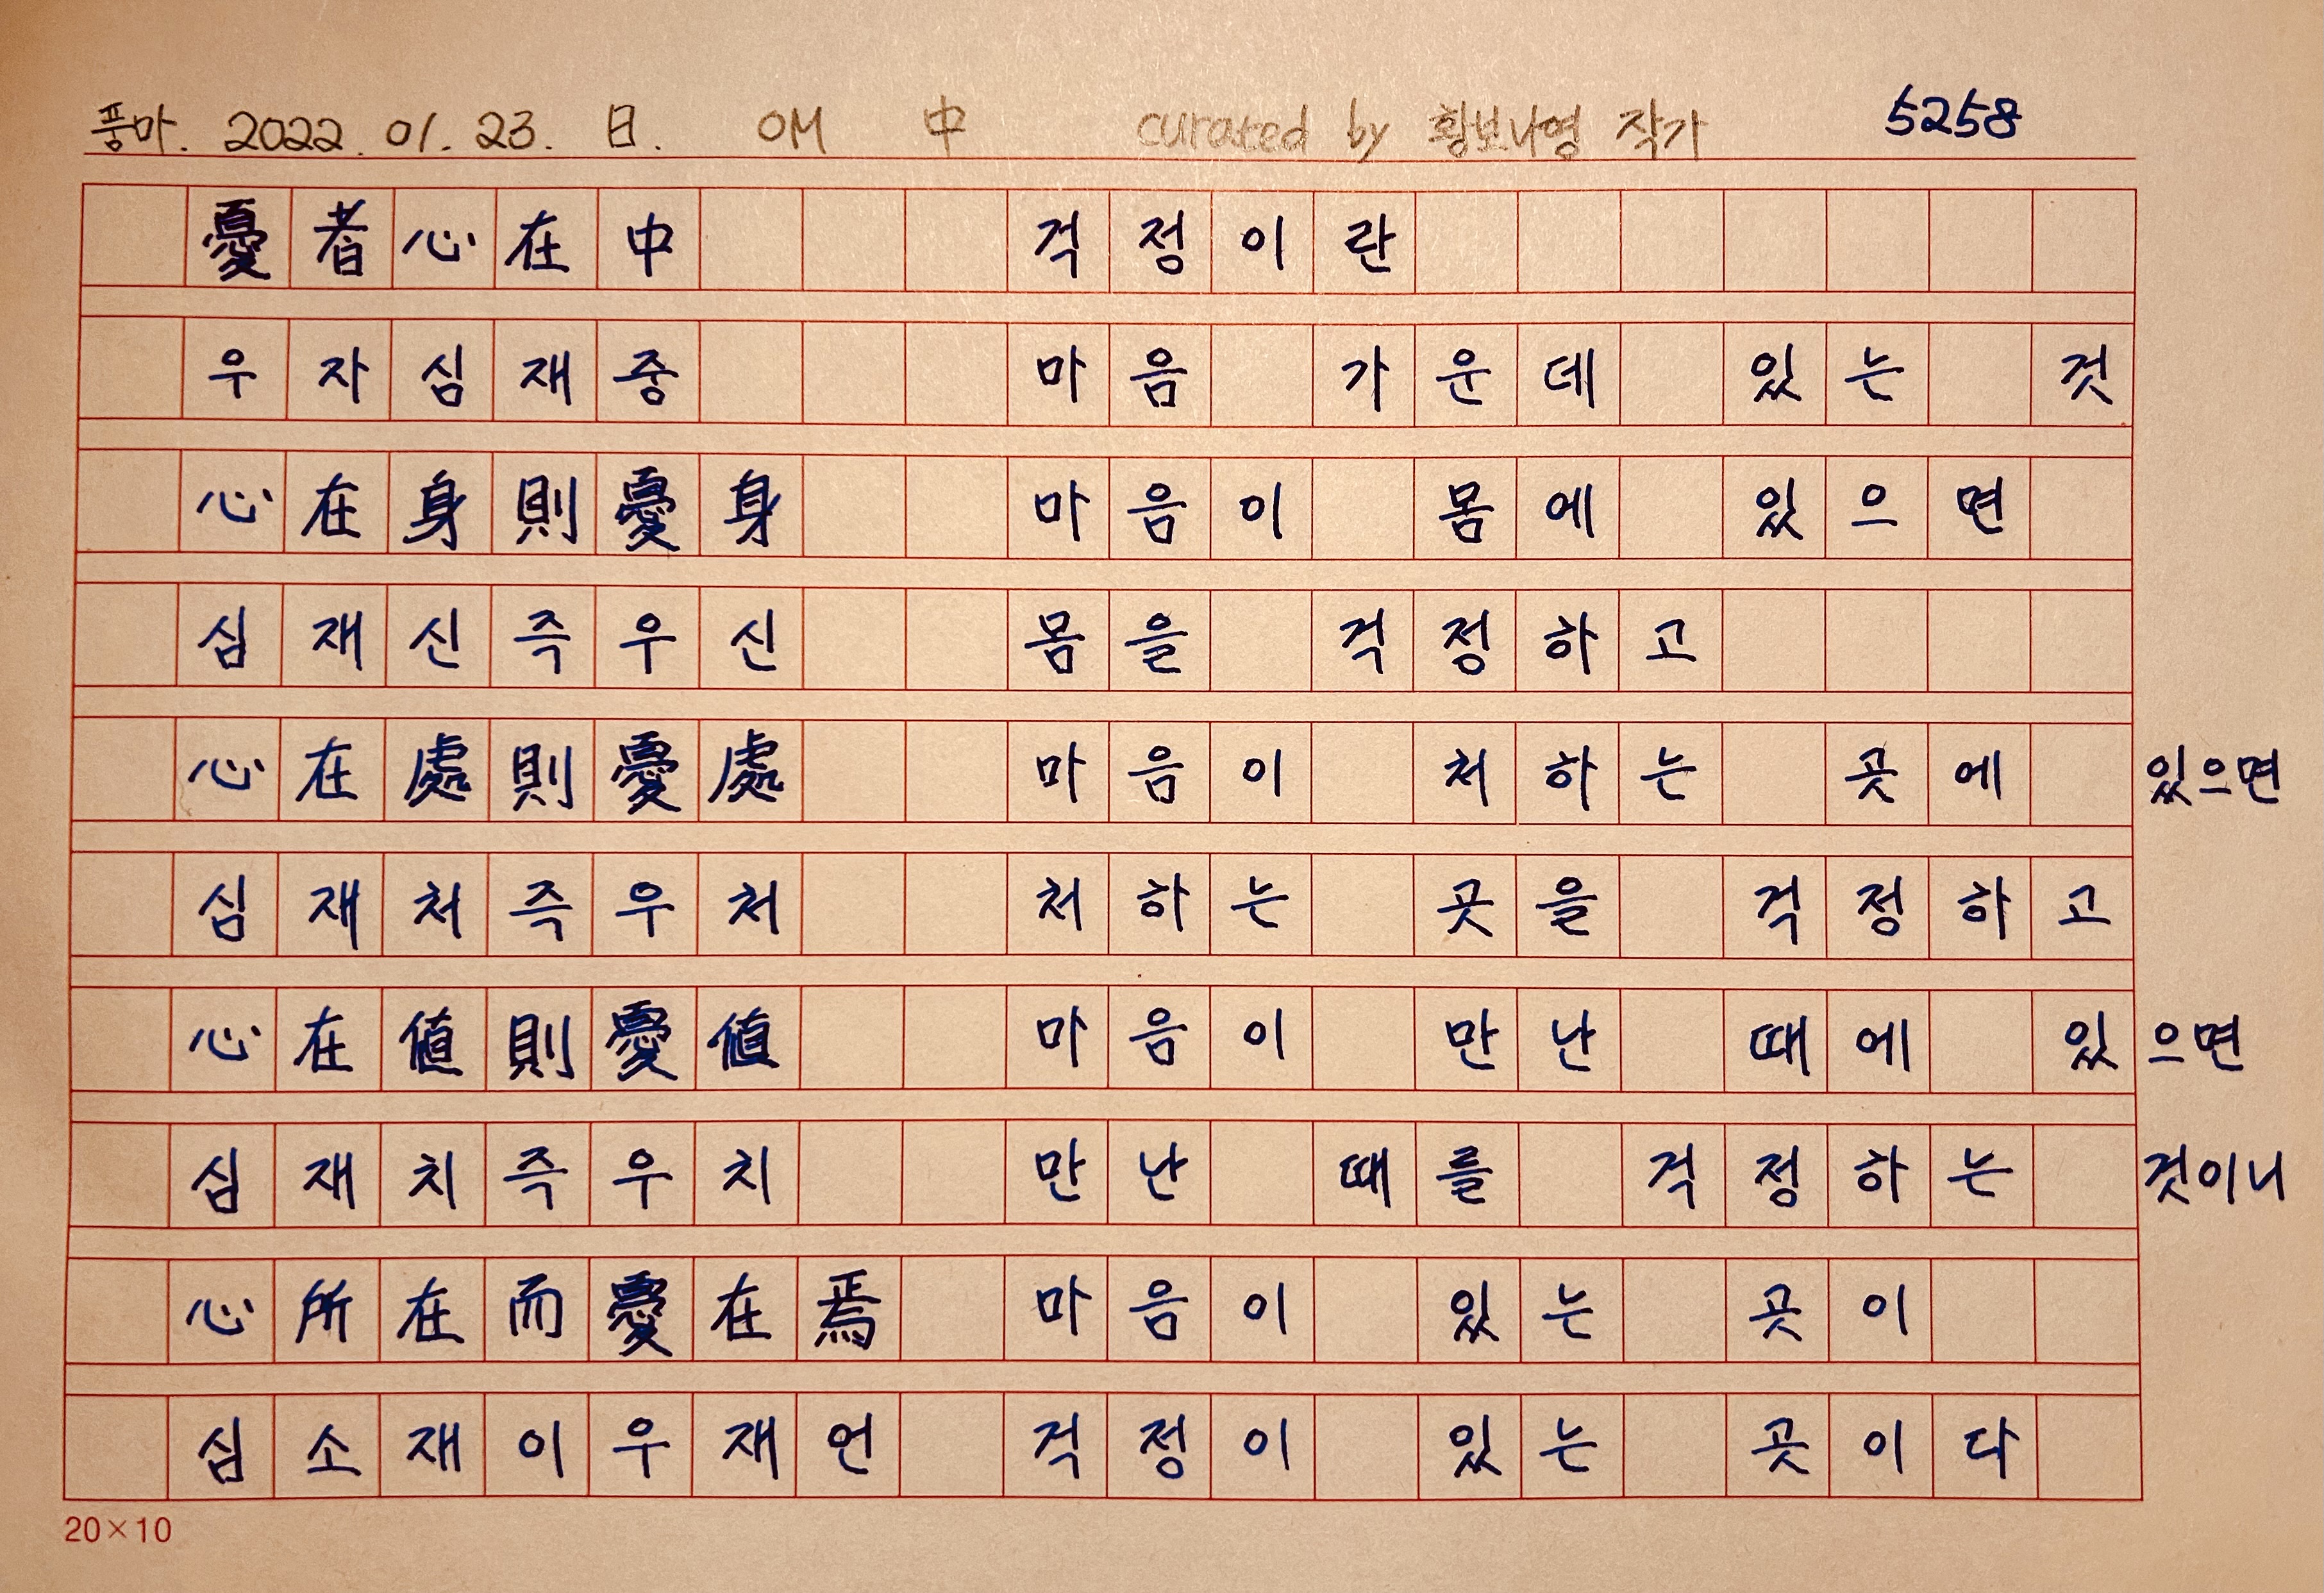 풍마. 2022. 01. 23. 日. OM 中 curated by 황보나영 작가 5258
憂者心在中 걱정이란
우자심재중 마음 가운데 있는 것
心在身則憂身 마음이 몸에 있으면
심재신즉우신 몸을 걱정하고
心在處則憂處 마음이 처하는 곳에 있으면
심재처즉우처 처하는 곳을 걱정하고
心在値則憂値 마음이 만난 때에 있으면
심재치즉우치 만난 때를 걱정하는 것이니
心所在而憂在焉 마음이 있는 곳이
심소재이우재언 걱정이 있는 곳이다
20×10